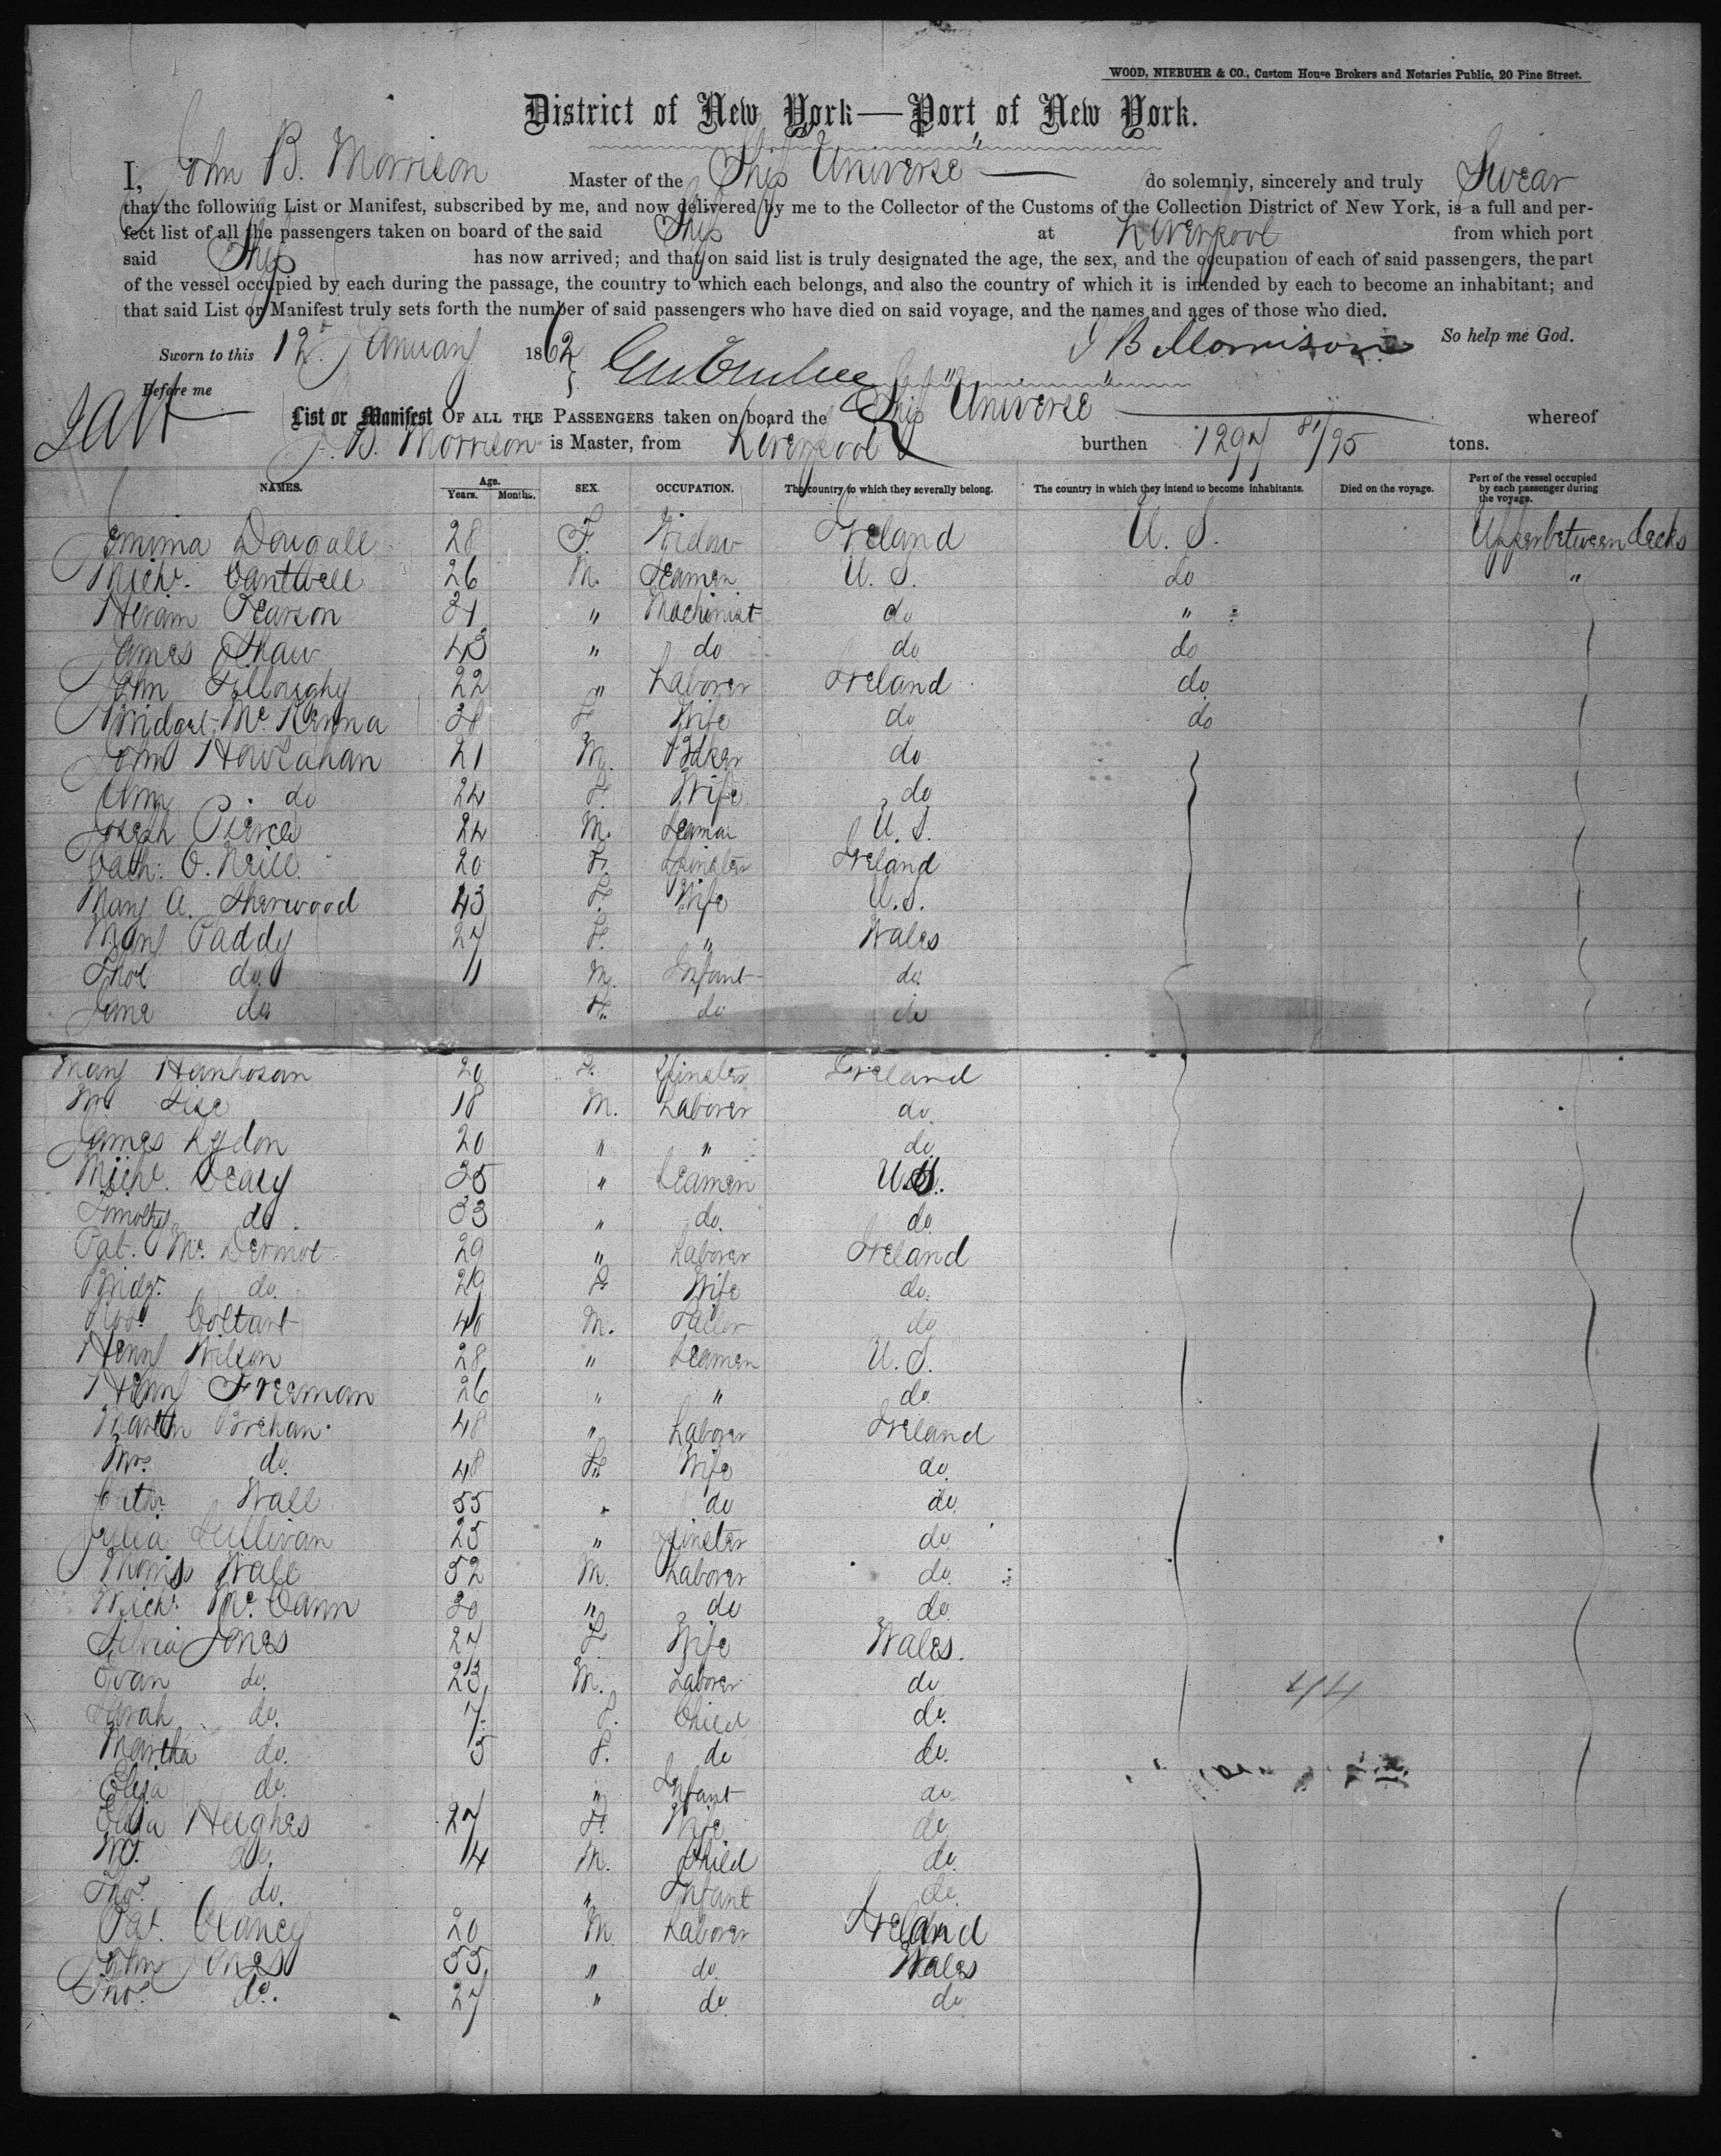 WOOD, NIEBUHR & CO., Custom House Brokers and Notaries Public, 20 Pine Street.
District of New York—Port of New York.
I, John B. Morrison Master of the Ship "Universe" do solemnly, sincerely and truly Swear
that the following List or Manifest, subscribed by me, and now delivered by me to the Collector of the Customs of the Collection District of New York, is a full and per-
fect list of all the passengers taken on board of the said Ship at Liverpool from which port
said Ship has now arrived; and that on said list is truly designated the age, the sex, and the occupation of each of said passengers, the part
of the vessel occupied by each during the passage, the country to which each belongs, and also the country of which it is intended by each to become an inhabitant; and
that said List or Manifest truly sets forth the number of said passengers who have died on said voyage, and the names and ages of those who died.
So help me God.
Sworn to this 12 January 1862 J B Morrison
Before me
List or Manifest OF ALL THE PASSENGERS taken on board the Ship "Universe" whereof
J. B. Morrison is Master, from Liverpool burthen 1297 81/95 tons.
NAMES. Age. Years. Months. SEX. OCCUPATION. The country to which they severally belong. The country in which they intend to become inhabitants. Died on the voyage. Part of the vessel occupied by each passenger during the voyage.
Jemima Dougall 28 F. Widow Ireland U. S. Upper between decks
Michl. Cantwell 26 M. Seaman U. S. do "
Hiram Pearson 31 " Machinist do "
James Shaw 43 " do do do
John 22 " Laborer Ireland do
Bridget McKenna 38 F Wife do do
John 21 M. do
Ann do 24 F. Wife do
Joseph Pierce 24 M. Seaman U. S.
Cath: O. Neill 20 F. Spinster Ireland
Mary A. Sherwood 43 F. Wife U. S.
Mary Paddy 27 F. " Wales
Thos do 11 M. Infant do
Jane do F. do do
Mary 20 F. Spinster Ireland
Wm 18 M. Laborer do
James Lydon 20 " " do
Michl. Deasy 35 " Seaman U. S.
Timothy do 33 " do. do
Pat. McDermot 29 " Laborer Ireland
Bridgt. do. 29 F Wife do.
Robt Coltart 40 M. do
Henry Wilson 28 " Seaman U. S.
Henry Freeman 26 " " do.
Martin Brehan 48 " Laborer Ireland
Mrs. do. 48 F. Wife do.
Cathr. Wall 55 " do do.
Julia Sullivan 25 " Spinster do.
Thomas Wall 52 M. Laborer do.
Michl. McCann 30 " do do.
Jones 27 F. Wife Wales.
Evan do. 23 M. Laborer do
Sarah do. 7 F. Child do.
Martha do. 5 F. do do.
Eliza do. " Infant do
Eliza Hughes 27 F. Wife do
Wm. do. 14 M. Child do.
Thos. do. " Infant do.
Pat. Clancy 20 M. Laborer Ireland
John Jones 55 " do. Wales
Thos. do. 27 " do do
44